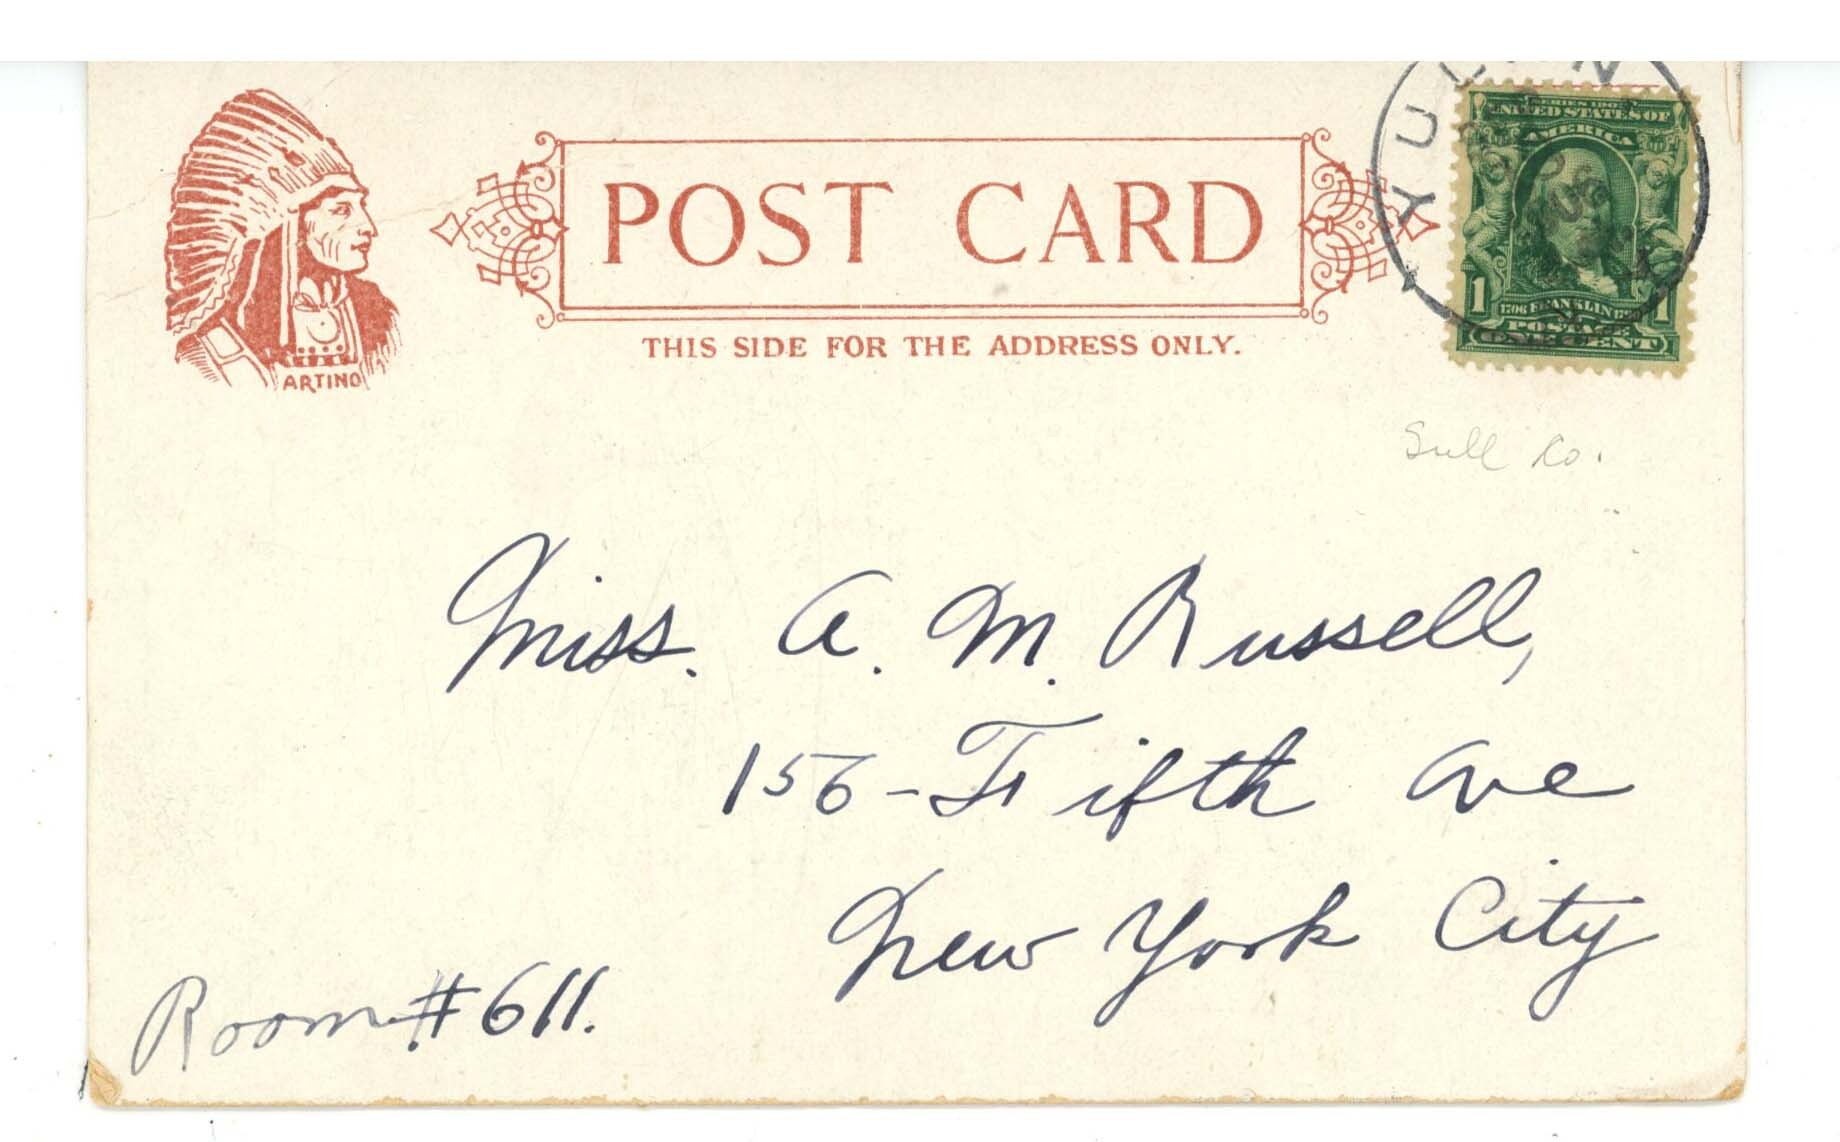 POST CARD
THIS SIDE FOR THE ADDRESS ONLY.
ARTINO
SERIES 1902
UNITED STATES OF
AMERICA
1 1706 FRANKLIN 1790 1
POSTAGE
ONE CENT
Sull Co.
Miss. A. M. Russell,
156 - Fifth Ave
New York City
Room #611.